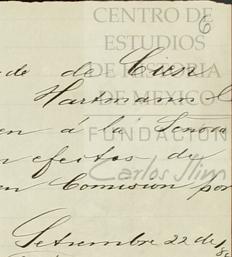 CENTRO DE
ESTUDIOS
DE HISTORIA
DE MEXICO
FUNDACIÓN
Carlos Slim
6
de de Cien
Hartmann
en á la Señora
n efectos de
en Comision por
Setiembre 22 de